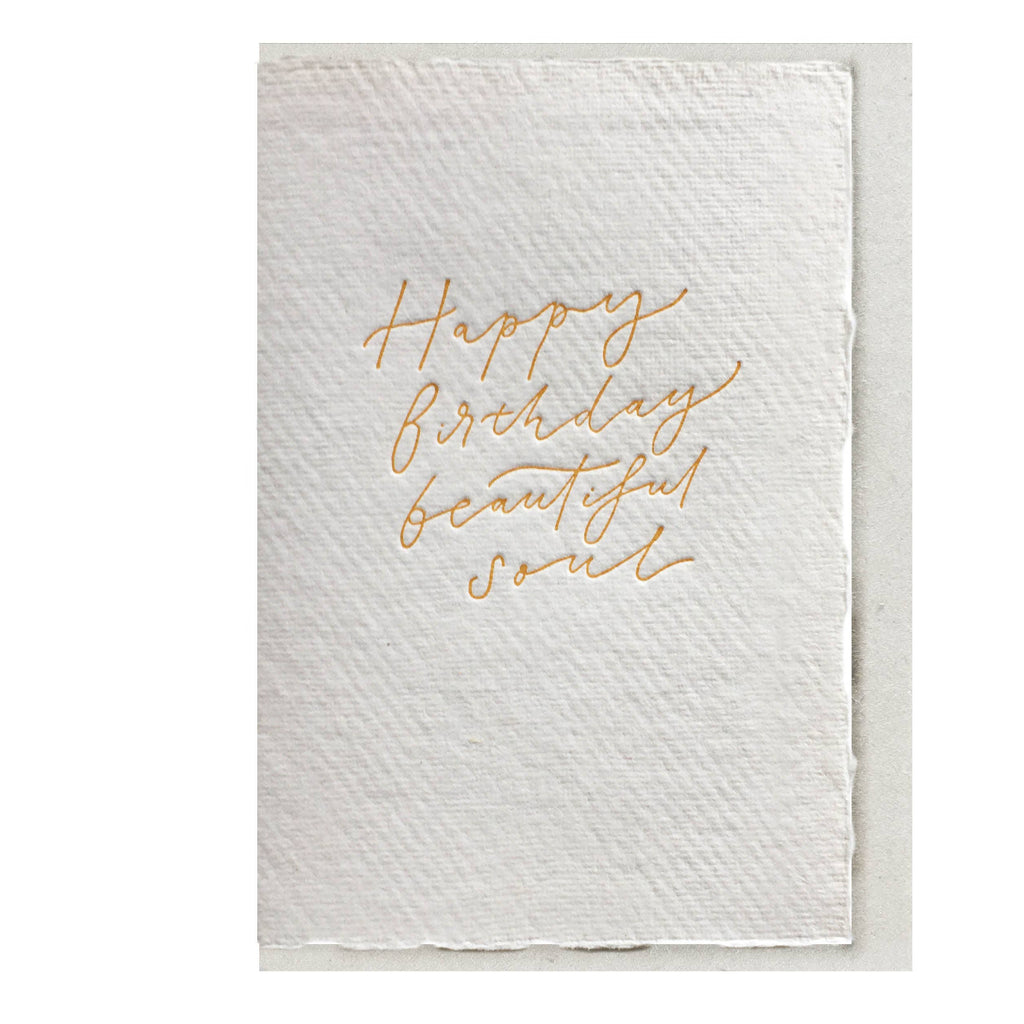 Happy
birthday
beautiful
soul